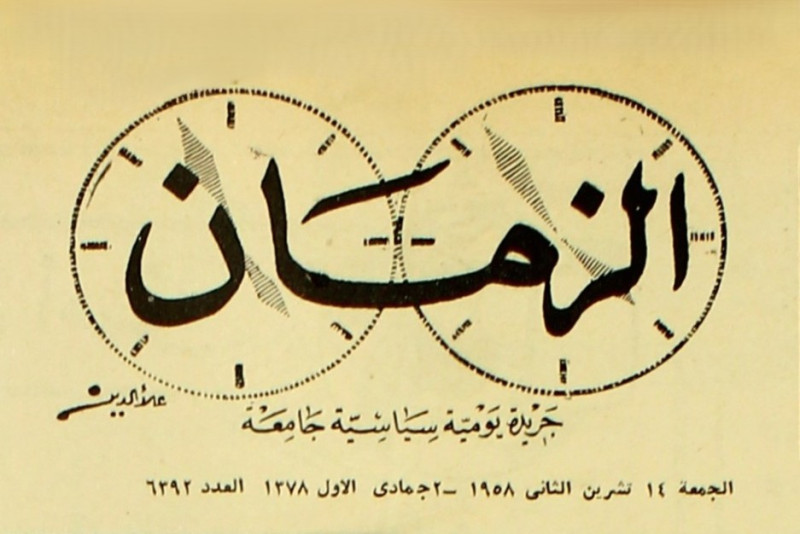 الزمان
علاء الدين
جريدة يومية سياسية جامعة
الجمعة ١٤ تشرين الثانى ١٩٥٨ –٢جمادى الاول ١٣٧٨ العدد ٦٣٩٢